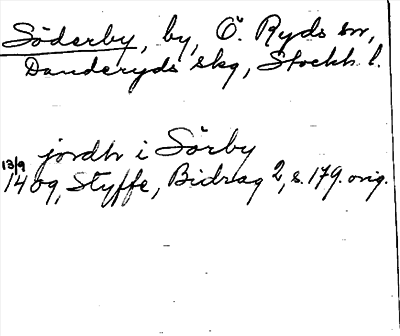 Söderby, by, Ö. Ryds sn,
Danderyds skg, Stockh. l.
jordh i Sörby
13/9 1409, Styffe, Bidrag 2, s. 179. orig.